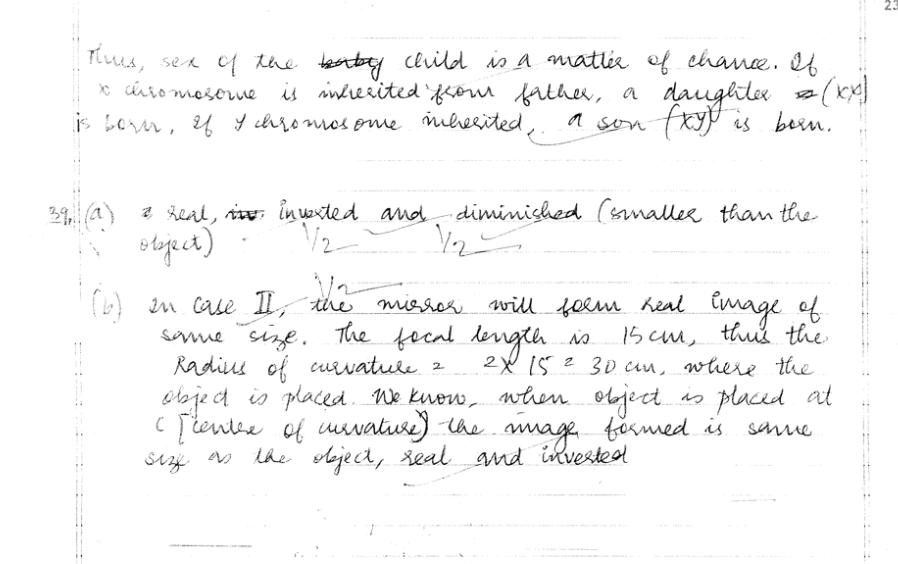 23
Thus, sex of the baby child is a matter of chance. If
x chromosome is inherited from father, a daughter = (XX)
is born, If Y chromosome inherited, a son (XY) is born.
39. (a) real, inverted and diminished (smaller than the
object)
1/2 1/2
1/2
(b) In case II, the mirror will form real image of
same size. The focal length is 15 cm, thus the
Radius of curvature = 2x 15 = 30 cm, where the
object is placed. We know, when object is placed at
C [center of curvature) the image formed is same
size as the object, real and inverted